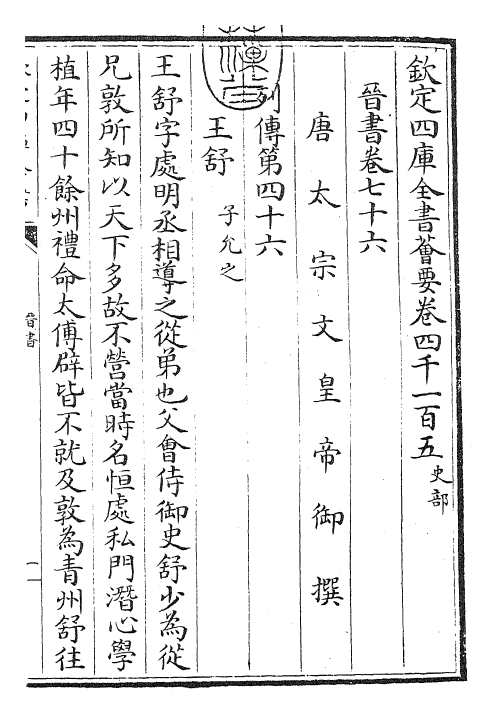 欽定四庫全書薈要卷四千一百五 史部
晉書卷七十六
唐太宗文皇帝御撰
列傳第四十六
王舒 子允之
王舒字處明丞相導之從弟也父會侍御史舒少為從
兄敦所知以天下多故不營當時名恒處私門潛心學
植年四十餘州禮命太傅辟皆不就及敦為青州舒往
晉書
一